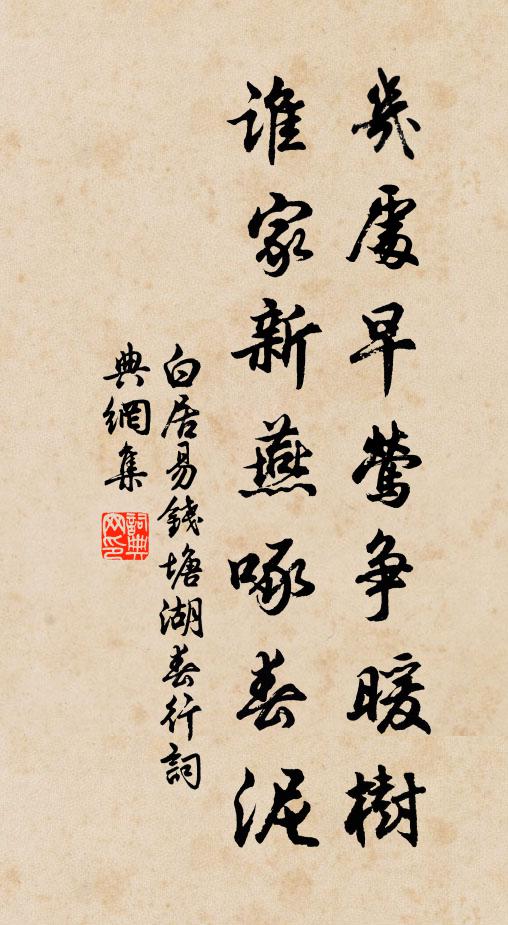 幾處早鶯爭暖樹
誰家新燕啄春泥
白居易錢塘湖春行詞
典網集
詞典網印